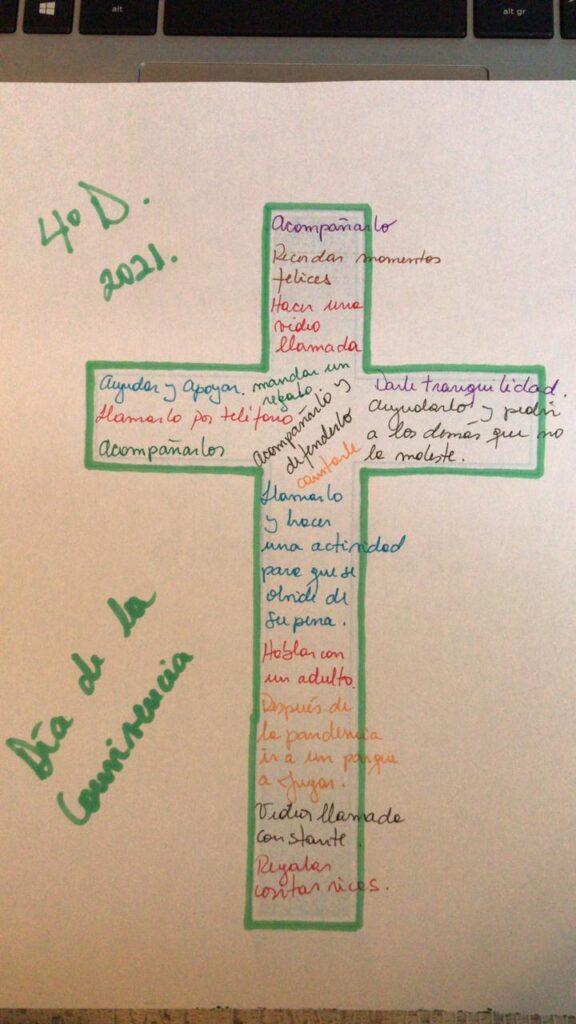 alt
alt gr
4º D.
2021.
Acompañarlo
Recordar momentos
felices
Hacer una
video
llamada
Ayudar y Apoyar.
Llamarlo por teléfono
Acompañarlos
mandar un
regalo.
Acompañarlo y
defenderlo
cantarle
Darle tranquilidad.
Ayudarlo y pedir
a los demás que no
lo moleste.
Llamarlo
y hacer
una actividad
para que se
olvide de
su pena.
Hablar con
un adulto.
Después de
la pandemia
ir a un parque
a jugar.
Video llamada
constante.
Regalar
cositas ricas.
Día de la
convivencia